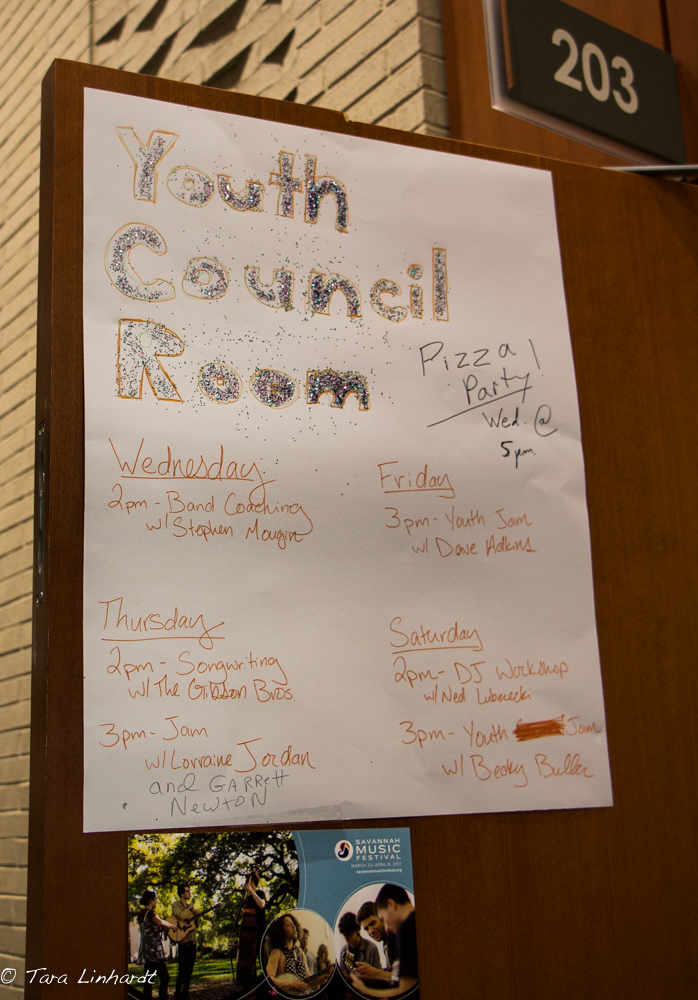 203
Youth
Council
Room
Pizza
Party!
Wed. @
5pm.
Wednesday
2pm - Band Coaching
w/ Stephen Mougin
Thursday
2pm - Songwriting
w/ The Gibson Bros
3pm - Jam
w/ Lorraine Jordan
and GARRETT
NEWTON
Friday
3pm - Youth Jam
w/ Dave Adkins
Saturday
2pm - DJ Workshop
w/ Ned Luberecki
3pm - Youth Jam
w/ Becky Buller
SAVANNAH
MUSIC
FESTIVAL
MARCH 23–APRIL 8, 2017
savannahmusicfestival.org
© Tara Linhardt